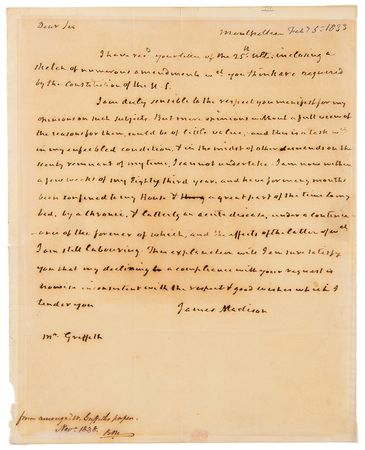 Dear Sir
Montpellier Feby 5 - 1833
I have recd your letter of the 25th Ult. inclosing a
sketch of numerous amendments wch you think are required
by the Constitution of the U. S.
I am duly sensible to the respect you manifest for my
opinions on such subjects. But mere opinions without a full view of
the reasons for them, could be of little value; and this is a task wch
in my enfeebled condition, & in the midst of other demands on the
scanty remnant of my time, I can not undertake. I am now within
a few weeks of my Eighty third year, and have for many months
been confined to my House & a great part of the time to my
bed, by a chronic, & latterly an acute disease, under a continu-
ance of the former of which, and the effects of the latter of wch
I am still labouring. This explanation will I am sure satisfy
you that my declining a compliance with your request is
no wise inconsistent with the respect & good wishes which I
tender you
James Madison
Mr. Griffith
from among W. Griffith's papers.
Novr. 1838.